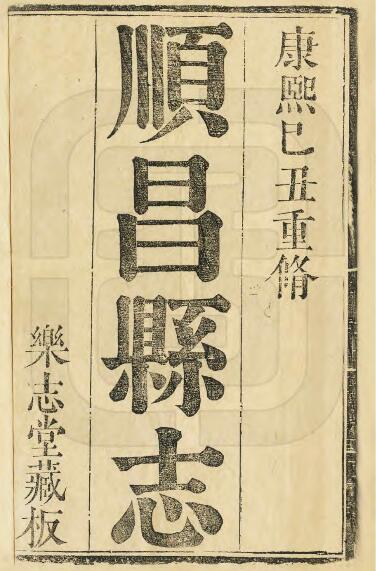 康熙己丑重脩
順昌縣志
樂志堂藏板